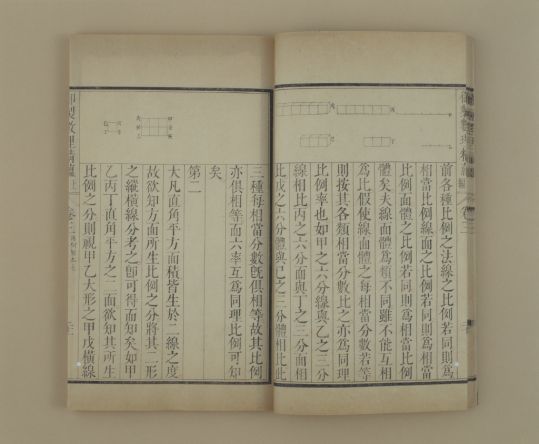 前各種比例之法線之比例若同則爲
相當比例線面之比例若同則爲相當
比例面體之比例若同則爲相當比例
體矣夫線面體爲類不同雖不能互相
爲比假使線面體之每相當分數若等
則按其各類相當分數比之亦爲同理
比例率也如甲之六分線與乙之三分
線相比丙之六分面與丁之三分面相
比戊之六分體與己之三分體相比此
三種每相當分數旣俱相等故其比例
亦俱相等而六率互爲同理比例可知
矣
第二
大凡直角平方面積皆生於二線之度
故欲知方面所生比例之分將其二形
之縱橫線分考之卽可得而知矣如甲
乙丙丁直角平方之二面欲知其所生
比例之分則視甲乙大形之甲戊橫線